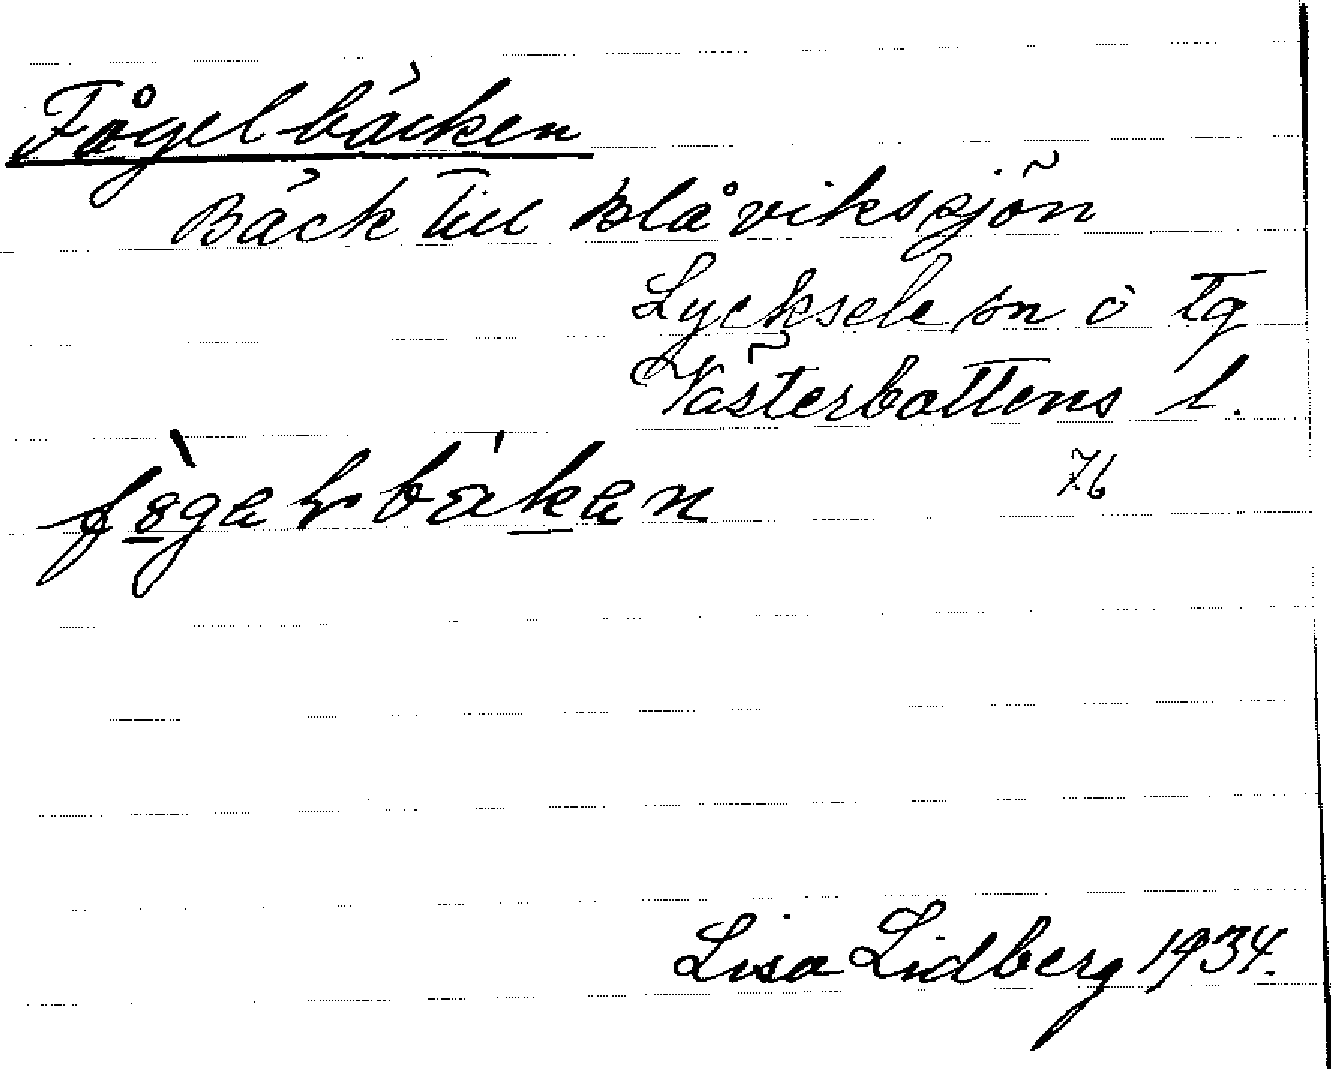 Fågelbäcken
Bäck till Blåvikssjön
Lycksele sn ö tg
Västerbottens l.
76
Lisa Lidberg 1934.